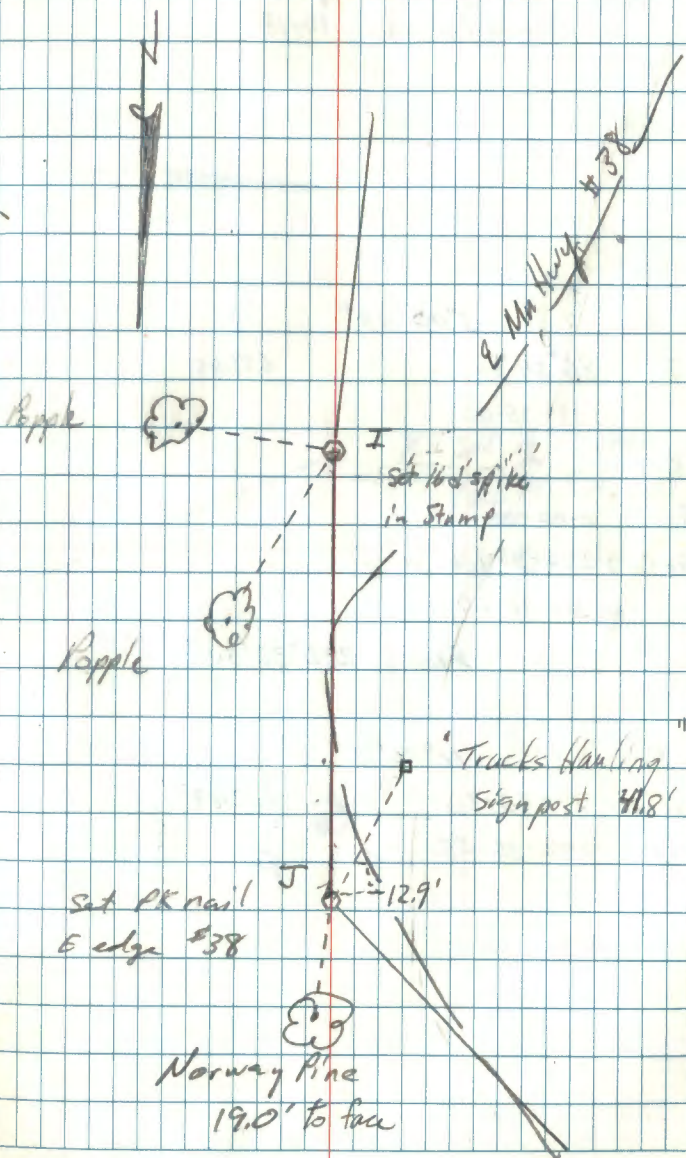 N
℄ Mn Hwy #38
Popple
I
Set 16d spike
in Stump
Popple
"Trucks Hauling"
Signpost 41.8'
J
12.9'
Set PK nail
E edge #38
Norway Pine
19.0' to face